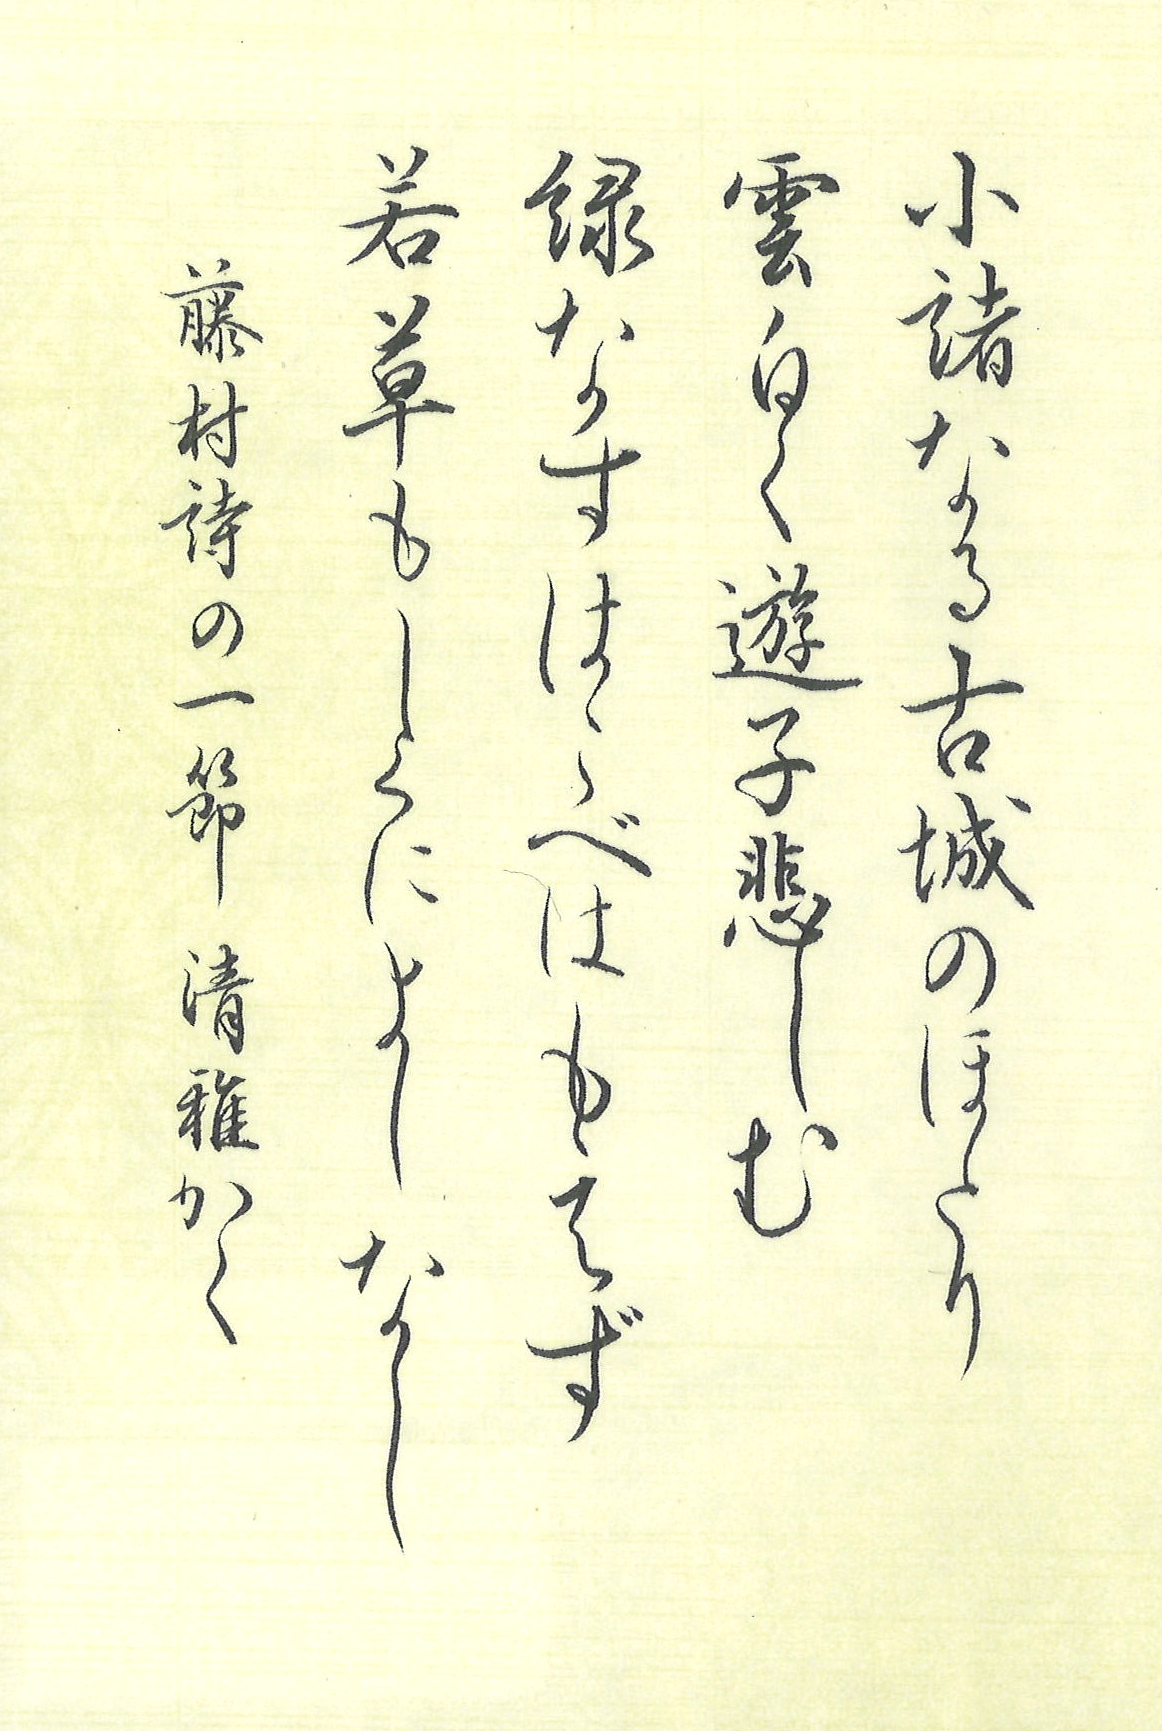 小諸なる古城のほとり
雲白く遊子悲しむ
緑なすはこべはもえず
若草もしくによしなし
藤村詩の一節 清雅かく